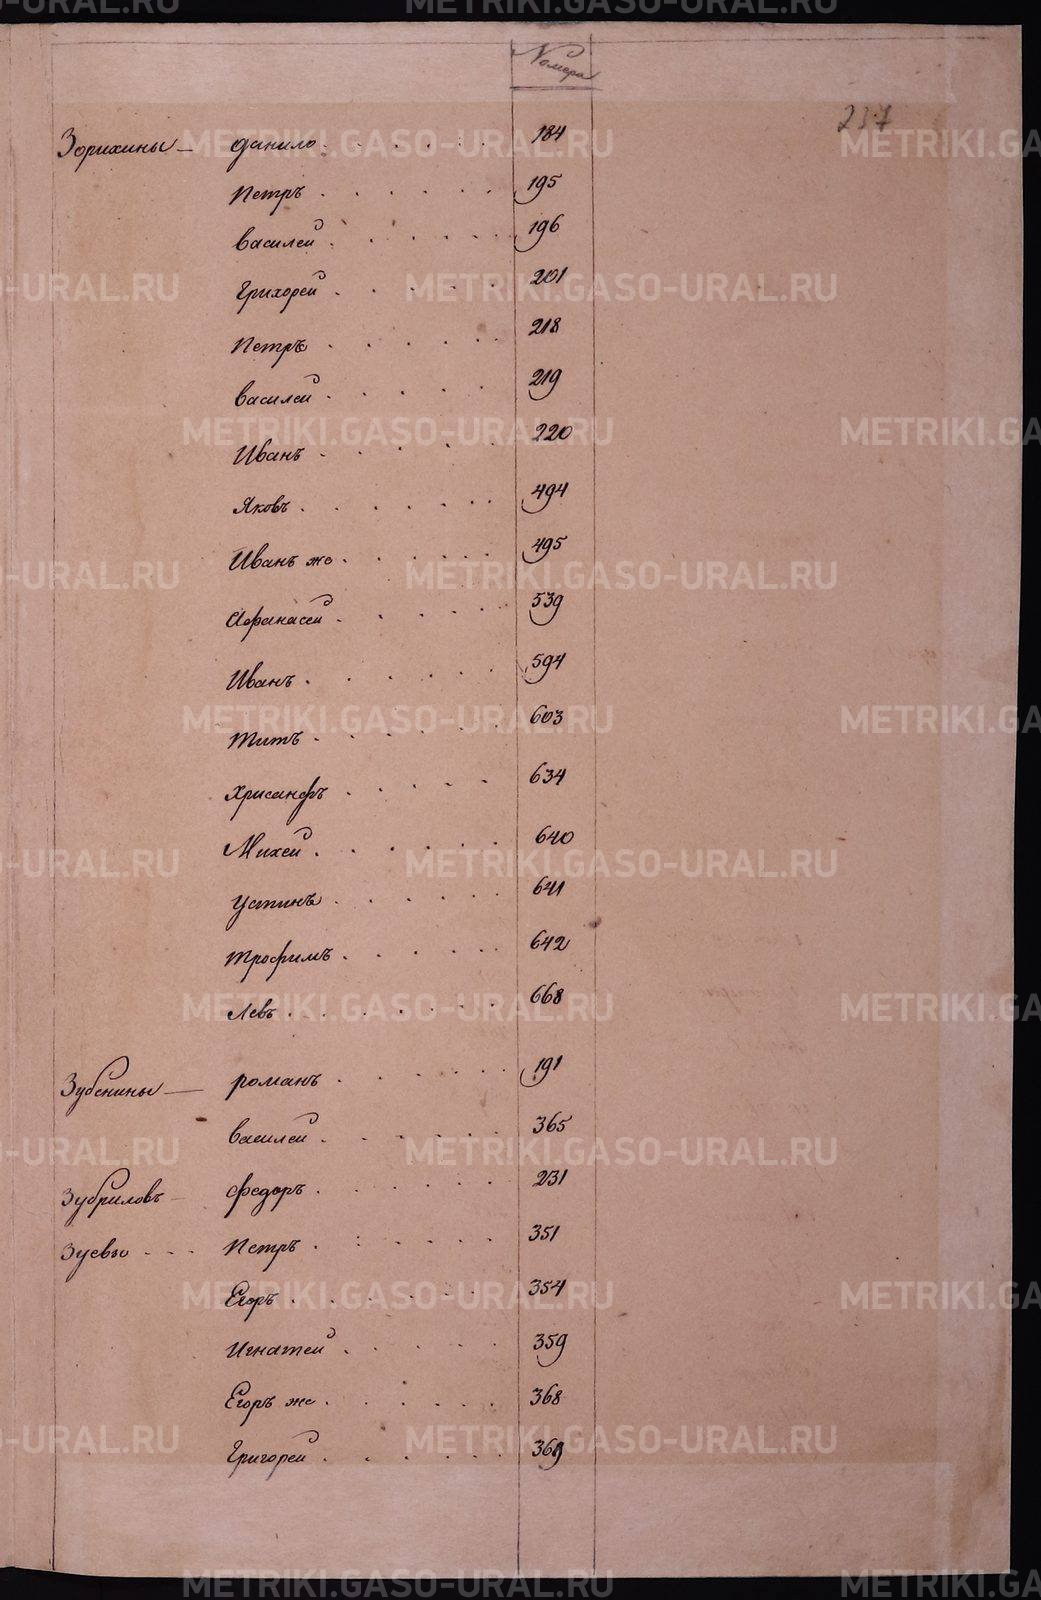 Номера
237
Зорихины — данило . . . . . . 184
Петръ . . . . . . 195
василей . . . . . . 196
Григорей . . . . . 201
Петръ . . . . . . 218
василей . . . . . 219
Иванъ . . . . . . 220
Яковъ . . . . . . 494
Иванъ же . . . . . 495
Афанасей . . . . . 539
Иванъ . . . . . . 594
титъ . . . . . . 603
хрисанфъ . . . . . 634
Михей . . . . . . 640
устинъ . . . . . . 641
трофимъ . . . . . 642
левъ . . . . . . 668
Зубенины — романъ . . . . . . 191
василей . . . . . . 365
Зубриловъ — федоръ . . . . . . 231
Зуевы - - - Петръ . . . . . . 351
Егоръ . . . . . . 354
Игнатей . . . . . 359
Егоръ же . . . . . 368
Григорей . . . . . . 369
METRIKI.GASO-URAL.RU